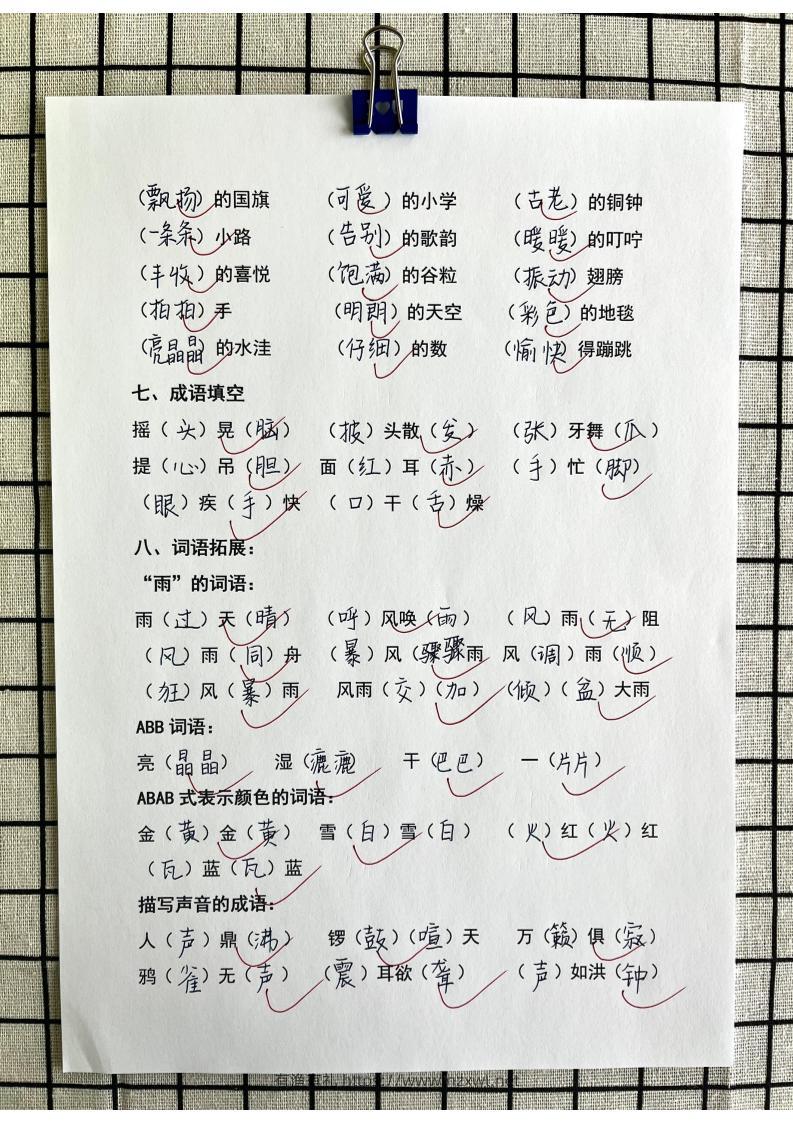 （飘扬）的国旗 （可爱）的小学 （古老）的铜钟
（一条条）小路 （告别）的歌韵 （暖暖）的叮咛
（丰收）的喜悦 （饱满）的谷粒 （振动）翅膀
（拍拍）手 （明朗）的天空 （彩色）的地毯
（亮晶晶）的水洼 （仔细）的数 （愉快）得蹦跳
七、成语填空
摇（头）晃（脑） （披）头散（发） （张）牙舞（爪）
提（心）吊（胆） 面（红）耳（赤） （手）忙（脚）
（眼）疾（手）快 （口）干（舌）燥
八、词语拓展：
“雨”的词语：
雨（过）天（晴） （呼）风唤（雨） （风）雨（无）阻
（风）雨（同）舟 （暴）风（骤骤雨 风（调）雨（顺）
（狂）风（暴）雨 风雨（交）（加） （倾）（盆）大雨
ABB 词语：
亮（晶晶） 湿（漉漉） 干（巴巴） 一（片片）
ABAB 式表示颜色的词语：
金（黄）金（黄） 雪（白）雪（白） （火）红（火）红
（瓦）蓝（瓦）蓝
描写声音的成语：
人（声）鼎（沸） 锣（鼓）（喧）天 万（籁）俱（寂）
鸦（雀）无（声） （震）耳欲（聋） （声）如洪（钟）